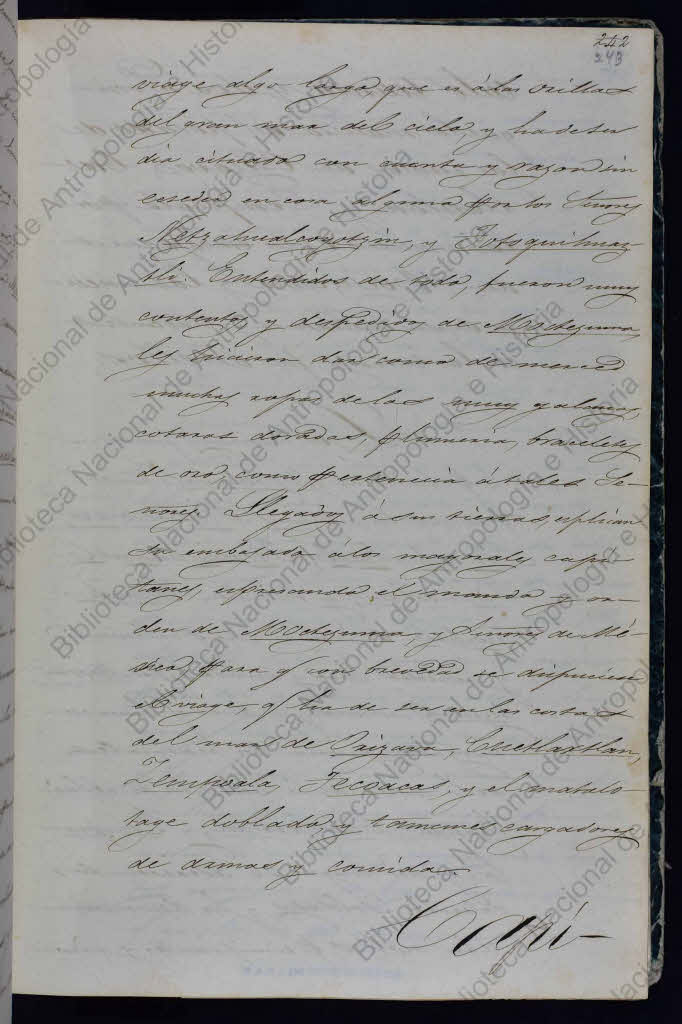 242
243
viage algo largo, que es á las orillas
del gran mar del cielo, y ha de ser
dia cituado con cuenta y razon sin
eceder en cosa alguna por los Señores
Netzahualcoyotzin, y Totoquihuaz-
tli. Entendidos de todo, fueron muy
contentos, y despedidos de Moctezuma,
les hicieron dar como de merced
muchas ropas de las muy galanas,
cotaras doradas, plumeria, braceletes
de oro, como pertenecia á tales Se-
ñores. Llegados á sus tierras, esplican
su embajada á los mayorales, capi-
tanes, espresando el mando y or-
den de Moctezuma, y Señores de Mé-
xico, para q con brevedad se dispusiese
el viage, q ha de ser en las costas
del mar de Orizava, Cuetlaxtlan,
Zempoala, Tecoacas, y el matalo-
tage doblado, y tamemes cargadores
de armas y comida.
Capi-
Biblioteca Nacional de Antropología e Historia